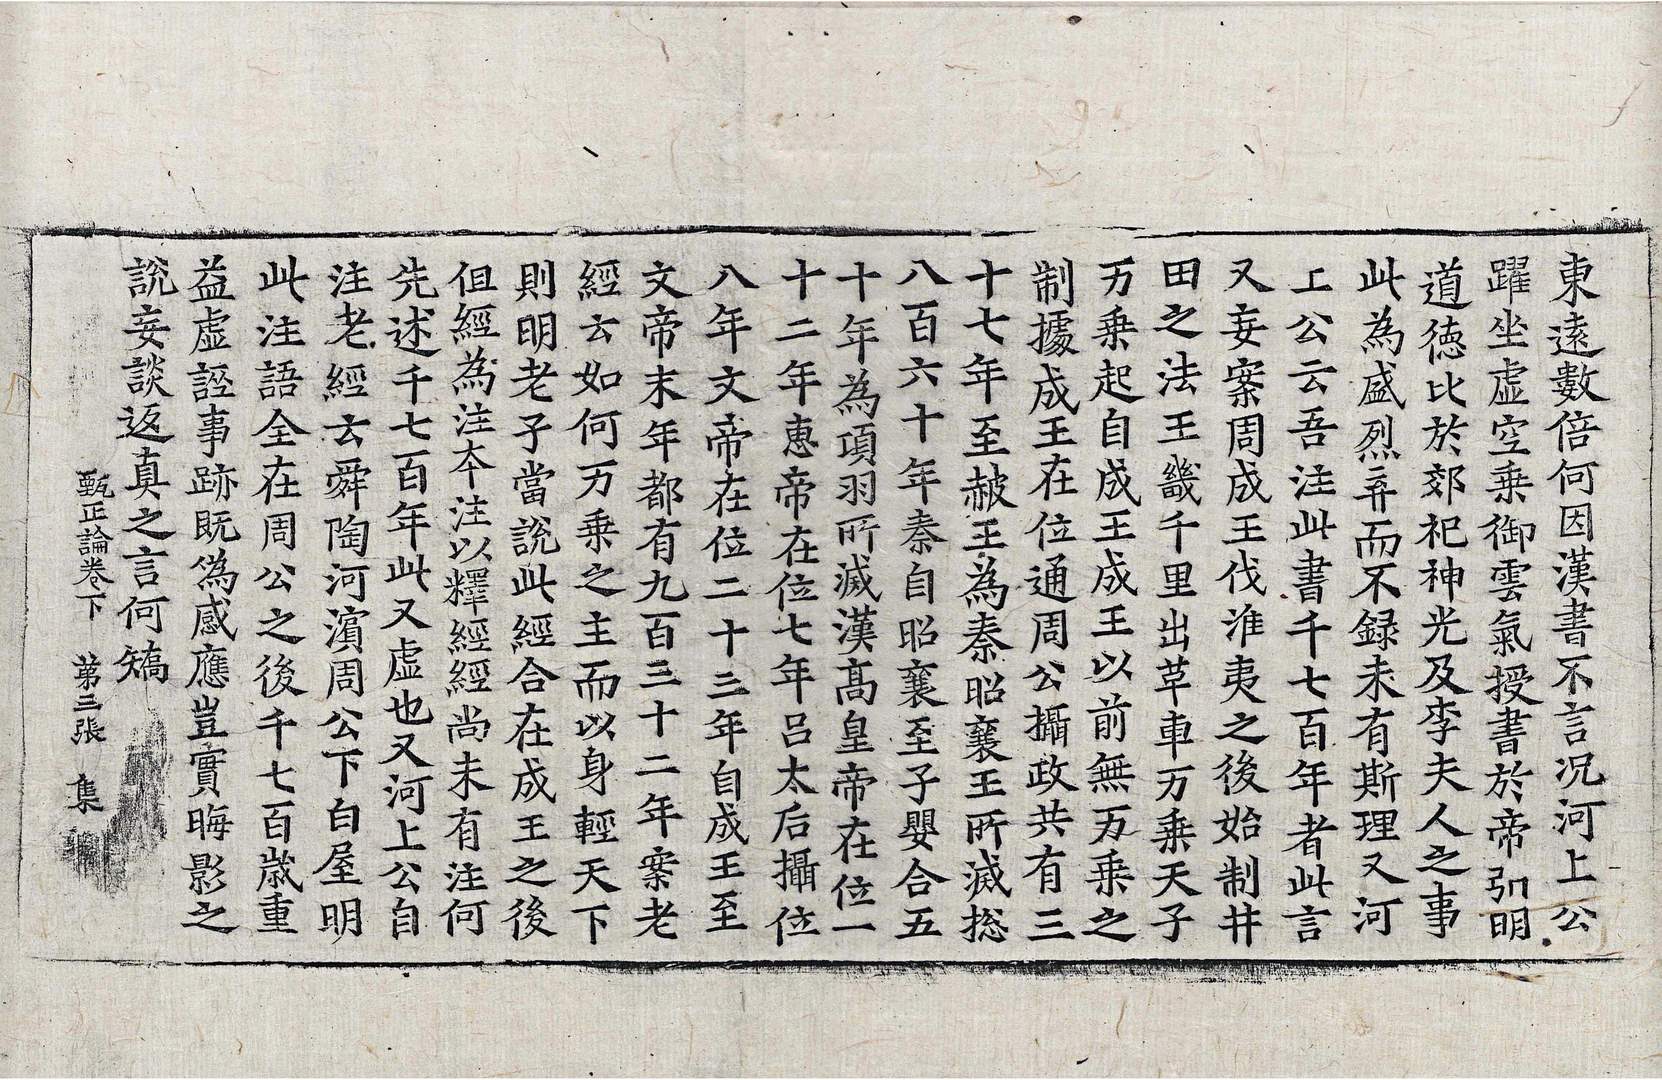 東遠數倍何因漢書不言況河上公
躍坐虛空乘御雲氣授書於帝弘明
道德比於郊祀神光及李夫人之事
此為盛烈弃而不録未有斯理又河
上公云吾注此書千七百年者此言
又妄案周成王伐淮夷之後始制井
田之法王畿千里出革車万乘天子
万乘起自成王成王以前無万乘之
制據成王在位通周公攝政共有三
十七年至赧王為秦昭襄王所滅揔
八百六十年秦自昭襄至子嬰合五
十年為項羽所滅漢高皇帝在位一
十二年惠帝在位七年呂太后攝位
八年文帝在位二十三年自成王至
文帝末年都有九百三十二年案老
經云如何万乘之主而以身輕天下
則明老子當說此經合在成王之後
但經為注本注以釋經經尚未有注何
先述千七百年此又虛也又河上公自
注老經云舜陶河濱周公下白屋明
此注語全在周公之後千七百歲重
益虛誣事跡既僞感應豈實晦影之
說妄談返真之言何矯
甄正論卷下 第三張 集